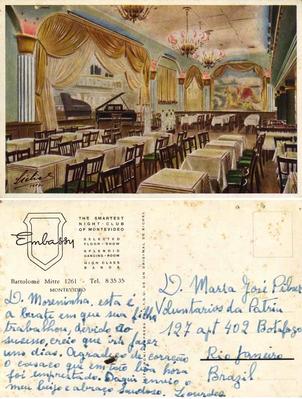 Embassy
THE SMARTEST
NIGHT-CLUB
OF MONTEVIDEO
SELECTED
FLOOR-SHOW
SPLENDID
DANCING-ROOM
HIGH CLASS
BANDS
Bartolomé Mitre 1261 - Tel. 8 35 35
MONTEVIDEO
D. Moreninha, esta é
a boate em que sua filha
trabalhou, devido ao
sucesso, creio que irá fazer
uns dias. Agradeço de coração
o casaco que em tão boa hora
foi emprestado. Daqui envio o
meu beijo e abraço saudoso. Lourdes
D. Maria José
Voluntarios da Patria
127 apt 402 Botafogo
Rio Janeiro
Brazil